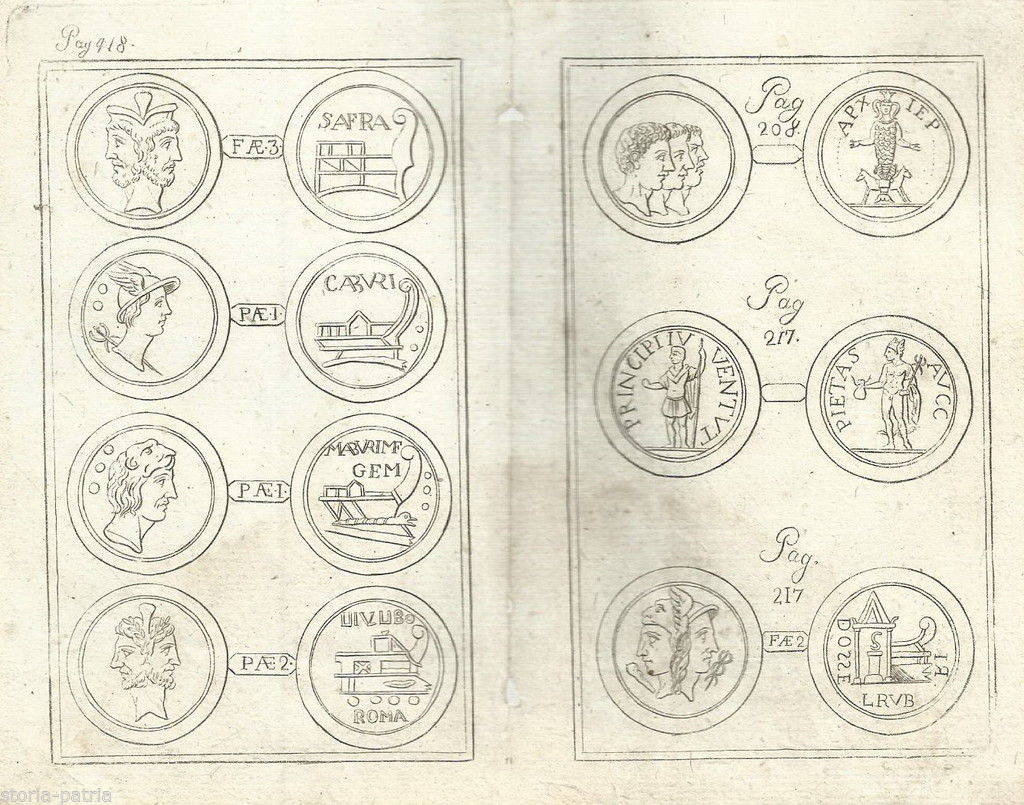 Pag 418.
FÆ·3
SAFRA
PÆ·1
CABVRI
PÆ·1·
MABVRIMF
GEM
PÆ2·
ROMA
Pag
208.
APX IEP
Pag
217.
PRINCIPI IVVENTVT
PIETAS AVCC
Pag.
217
FÆ2
DOSSE
LRVB
storia-patria